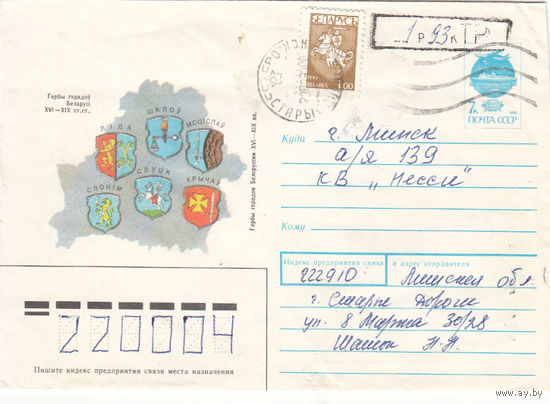 Гербы гарадоў
Беларусі
XVI—XIX ст.ст.
ЛІДА
ШКЛОЎ
МСЦІСЛАЎ
СЛОНІМ
СЛУЦК
КРЫЧАЎ
Гербы городов Белоруссии XVI—XIX вв.
БЕЛАРУСЬ
1992
BELARUS
1.00
1 р 93 к ТР
7к
ПОЧТА СССР
Куда
г. Минск
а/я 139
КВ "Несси"
Кому
Индекс предприятия связи
и адрес отправителя
222910
Минская обл.
г. Старые Дороги
ул. 8 Марта 30/28
Н.Н.
220004
Пишите индекс предприятия связи места назначения
ay.by